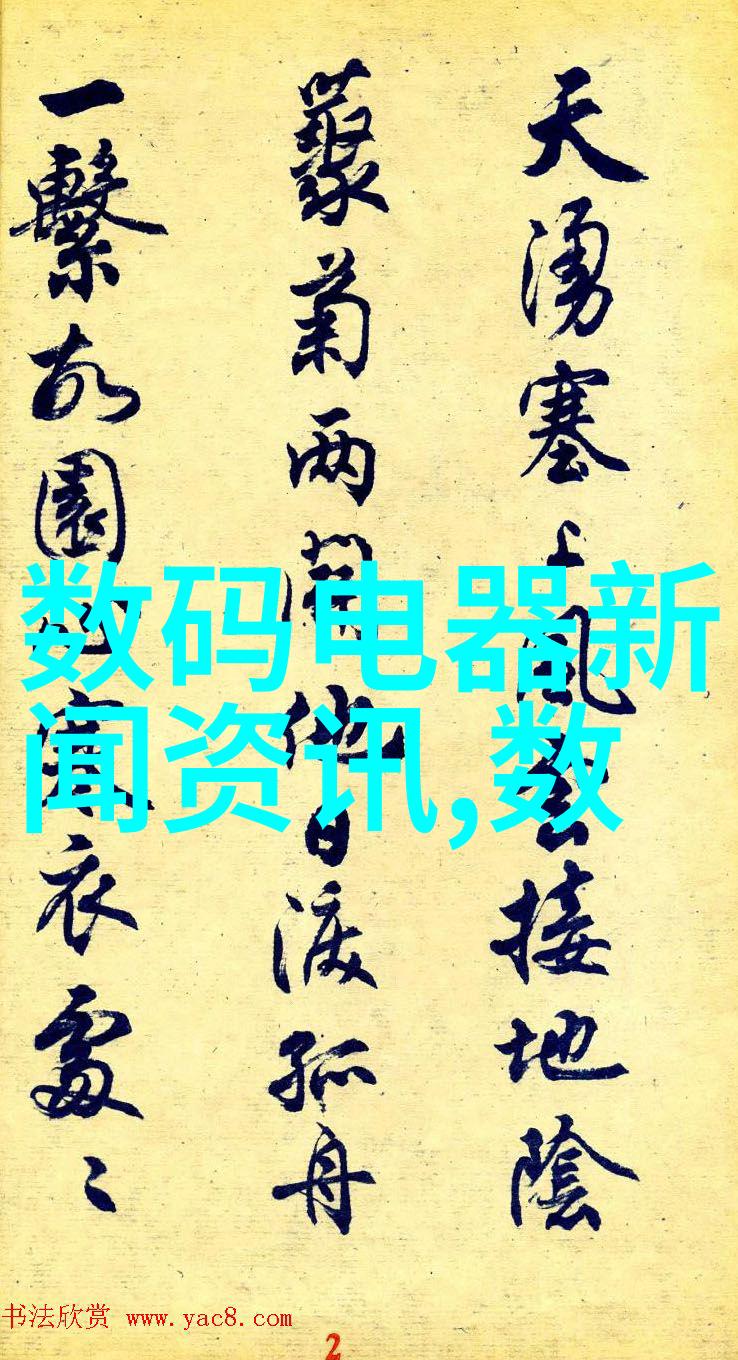 天湧塞上風雲接地陰
叢菊两開他日淚孤舟
一繫故園心寒衣處〻
数码电器新
闻资讯,数
书法欣赏 www.yac8.com
2